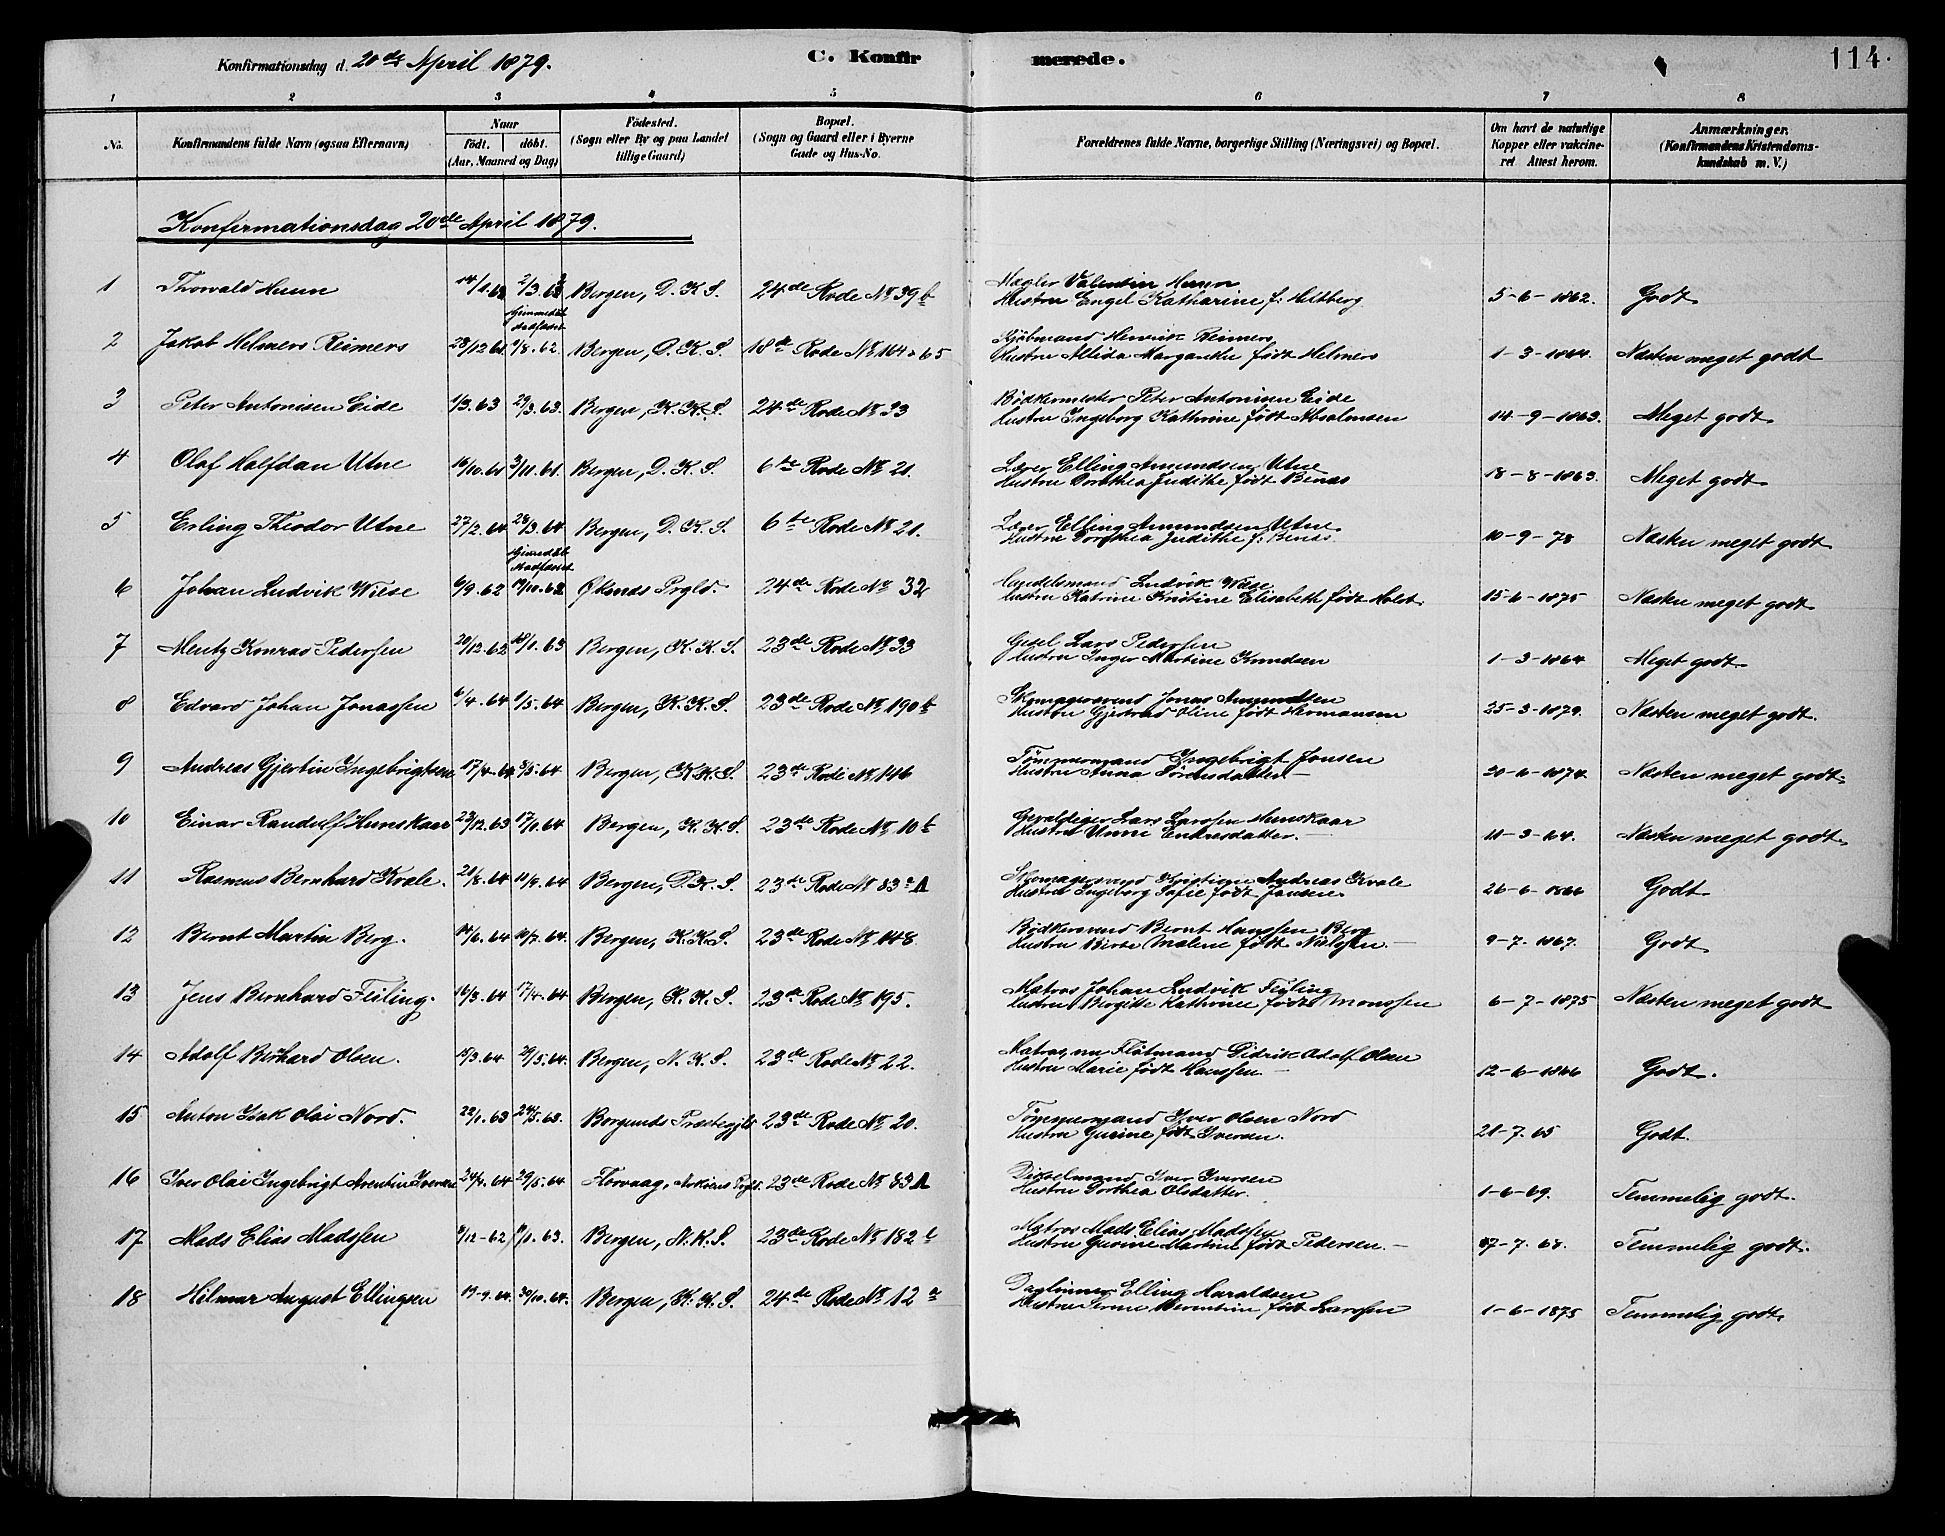 Konfirmationsdag d. 20de April 1879. C. Konfirmerede. 114.
1 2 3 4 5 6 7 8
No. Konfirmandens fulde Navn (ogsaa Efternavn) Naar født. døbt. (Aar, Maaned og Dag) Fødested. (Sogn eller By og paa Landet tillige Gaard) Bopæl. (Sogn og Gaard eller i Byerne Gade og Hus-No. Forældrenes fulde Navne, borgerlige Stilling (Næringsvei) og Bopæl. Om havt de naturlige Kopper eller vakcineret Attest herom. Anmærkninger. (Konfirmandens Kristendomskundskab m. V.)
Konfirmationsdag 20de April 1879.
1 Thorvald 2/3. Bergen, D. K. S. 24de Rode No 39b Mægler Valentin
Hustru Engel Katharine f: Heltberg 5-6-1862. Godt
Hjemmedøbt
Stadfæstet
2 Jakob Helmers Reimers 23/12 61 /8.62 Bergen, D. K. S. 18de Rode No 164 & 65 Kjøbmand Henrik Reimers
Hustru Alida Margarethe født Helmers 1-3-1864. Næsten meget godt
3 Peter Antonisen Eide 1/3.63 29/3.63. Bergen, K. K. S. 24de Rode No 33 Bødkermester Peter Antonisen Eide
Hustru Ingeborg Kathrine født Absalonsen 14-9-1863. Meget godt
4 Olaf Halfdan Utne 3/11.61. Bergen, D. K. S. 6te Rode No 21. Lærer Elling Amundsen Utne
Hustru Dorothea Judithe født Benas 18-8-1863. Meget godt
5 Erling Theodor Utne 27/2.64 28/3.64 Bergen, D. K. S. 6te Rode No 21. Lærer Elling Amundsen Utne.
Hustru Dorothea Judithe f. Benas. 10-9-78 Næsten meget godt
Hjemmedøbt
Stadfæstet
6 Johan Ludvik Wiese 6/9.62 19/10.62 Prgld. 24de Rode No 32 Handelsmand Ludvik Wiese
Hustru Katrine Kristine Elisabeth født Holst. 15-6-1875 Næsten meget godt
7 Mentz Konrad Pedersen 20/12.62 18/1.63 Bergen, K. K. S. 23de Rode No 33 Lars Pedersen
Hustru Inger Martine Knudsen 1-3-1864 Meget godt
8 Edvard Johan Jonassen 6/4.64 1/5.64 Bergen, K. K. S. 23de Rode No 190b Skomagersvend Jonas Amundsen
Hustru Gjertrud Oline født Hermansen 25-3-1879. Næsten meget godt.
9 Andreas Gjertin Ingebrigtsen 17/4.64 8/5.64 Bergen, K. K. S. 23de Rode No 146 Tømmermand Ingebrigt Jonsen
Hustru Anna Sørensdatter 20-6-1874 Næsten meget godt
10 Einar Randulf Hunskaar 23/12.63 17/1.64 Bergen, K. K. S. 23de Rode No 10b Gevaldiger Lars Larssen Hunskaar
Hustru Unni Endresdatter. 11-3-64. Næsten meget godt
11 Rasmus Bernhard Kvale. Bergen, D. K. S. 23de Rode No 83a A Skomagersvend Kristian Andreas Kvale
Hustru Ingeborg Sofie født Jansen 26-6-1866 Godt
12 Bernt Martin Berg. 14/6.64 10/7.64. Bergen, K. K. S. 23de Rode No 148 Bødkersvend Bernt Hanssen Berg
Hustru Birte Malene født Nielssen. 9-7-1867. Godt
13 Jens Bernhard Feiling. 16/3.64 17/4.64 Bergen, K. K. S. 23de Rode No 195. Matros Johan Ludvik Feiling
Hustru Birgitte Kathrine født Monssen 6-7-1875 Næsten meget godt
14 Adolf Berhard Olsen. 15/3.64 29/5.64. Bergen, N. K. S. 23de Rode No 22. Matros, nu Fløtmand Didrik Adolf Olsen
Hustru Marie født Hanssen. 12-6-1866 Godt.
15 Anton Isak Olai Nord. 22/1.63 24/5.63. Borgunds Præstegjld 23de Rode No 20. Tømmermand Iver Olsen Nord
Hustru Gurine født Iversen. 21-7.65 Godt.
16 Iver Olai Ingebrigt Arentin Iversen 24/4.64 29/5.64 Florvaag, Askøens Prgld. 23de Rode No 83 A Iver Iversen
Hustru Dorthea Olsdatter. 1-6-69. Temmelig godt.
17 Mads Elias Madssen 8/12-62 1/1.63. Bergen, N. K. S. 23de Rode No 182b Matros Mads Elias Madssen
Hustru Gurine Martine født Pedersen. 7-7.68. Temmelig godt.
18 Hilmar August Ellingsen 19-9.64. 30/10.64. Bergen, K. K. S. 24de Rode No 12a Daglønner Elling Haraldsen
Hustru Berentine født Larssen 1-6-1875 Temmelig godt.